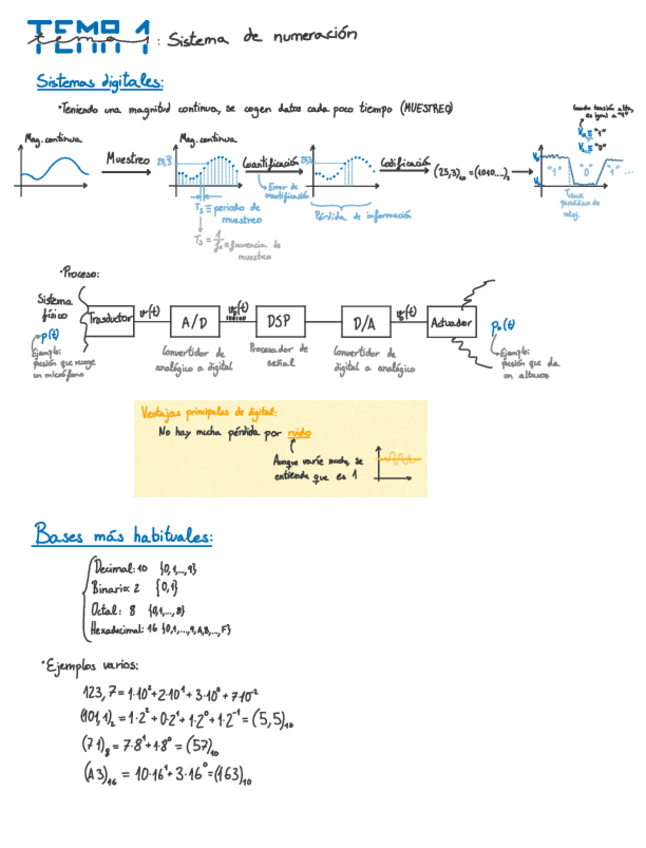 TEMA 1
tema 1 : Sistema de numeración
Sistemas digitales:
·Teniendo una magnitud continua, se cogen datos cada poco tiempo (MUESTREO)
Mag. continua
Muestreo
Mag. continua
25,3
Cuantificación
Error de cuantificación
Codificación
(25,3)₁₀ = (1010...)₂
Cuando tensión alta, es igual a "1"
"1" "0" "1" ...
periódico de reloj.
Ts ≡ periodo de muestreo
Pérdida de información
Ts = 1/fs ≡ frecuencia de muestreo
·Proceso:
Sistema físico
p(t)
Ejemplo: presión que recoge un micrófono
Trasductor
v(t)
A/D
Convertidor de analógico a digital
DSP
Procesador de señal
D/A
Convertidor de digital a analógico
Actuador
p₀(t)
Ejemplo: presión que da un altavoz
Ventajas principales de digital:
No hay mucha pérdida por ruido
Aunque varíe mucho, se
entiende que es 1
Bases más habituales:
Decimal: 10 {0,1...,9}
Binario: 2 {0,1}
Octal: 8 {0,1,...,8}
Hexadecimal: 16 {0,1,...,9,A,B,...,F}
·Ejemplos varios:
123,7 = 1·10² + 2·10¹ + 3·10⁰ + 7·10⁻²
(101,1)₂ = 1·2² + 0·2¹ + 1·2⁰ + 1·2⁻¹ = (5,5)₁₀
(71)₈ = 7·8¹ + 1·8⁰ = (57)₁₀
(A3)₁₆ = 10·16¹ + 3·16⁰ = (163)₁₀